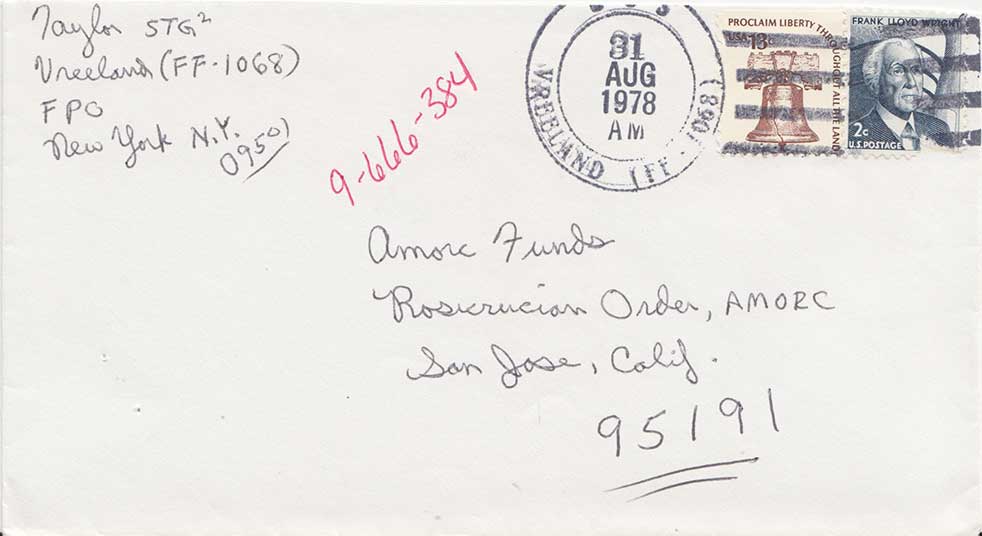 Taylor STG2
Vreeland (FF-1068)
FPO
New York N.Y.
09501
9-666-384
USS
VREELAND (FF - 1068)
31
AUG
1978
AM
PROCLAIM LIBERTY THROUGHOUT ALL THE LAND
USA 13c
FRANK LLOYD WRIGHT
2c
U.S. POSTAGE
Amorc Funds
Rosicrucian Order, AMORC
San Jose, Calif.
95191